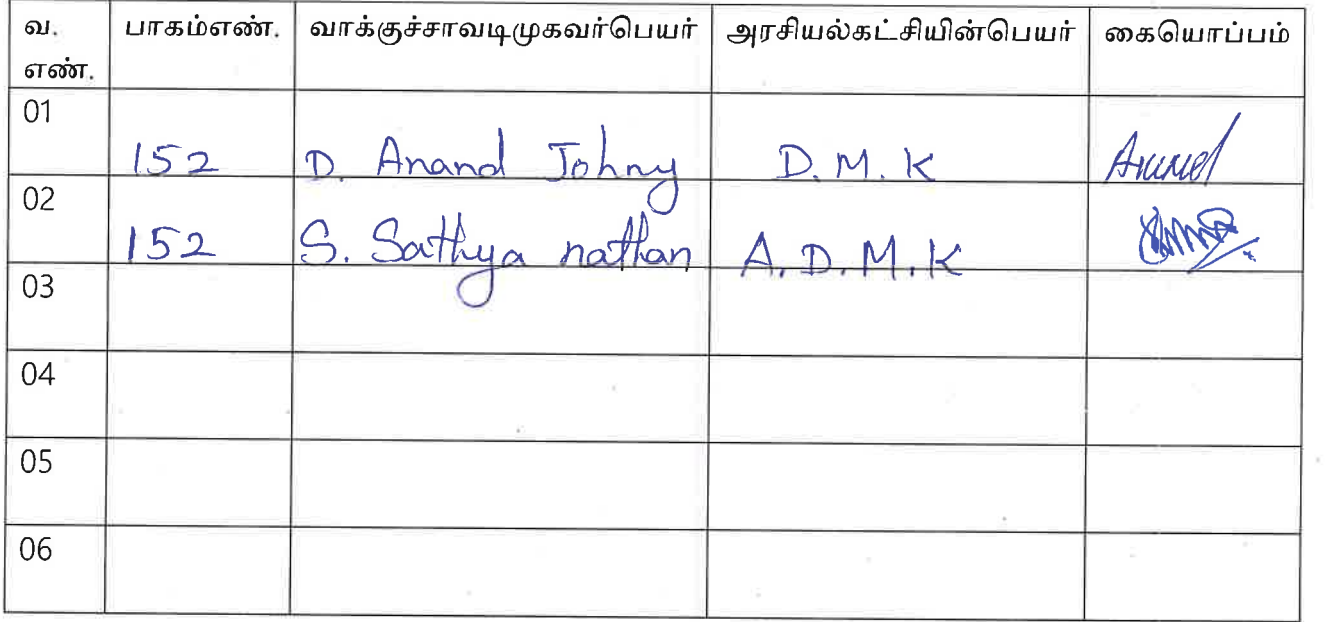 வ. எண். பாகம்எண். வாக்குச்சாவடிமுகவர்பெயர் அரசியல்கட்சியின்பெயர் கையொப்பம்
01 152 D. Anand Johny D.M.K Anand
02 152 S. Sathya nathan A.D.M.K
03
04
05
06